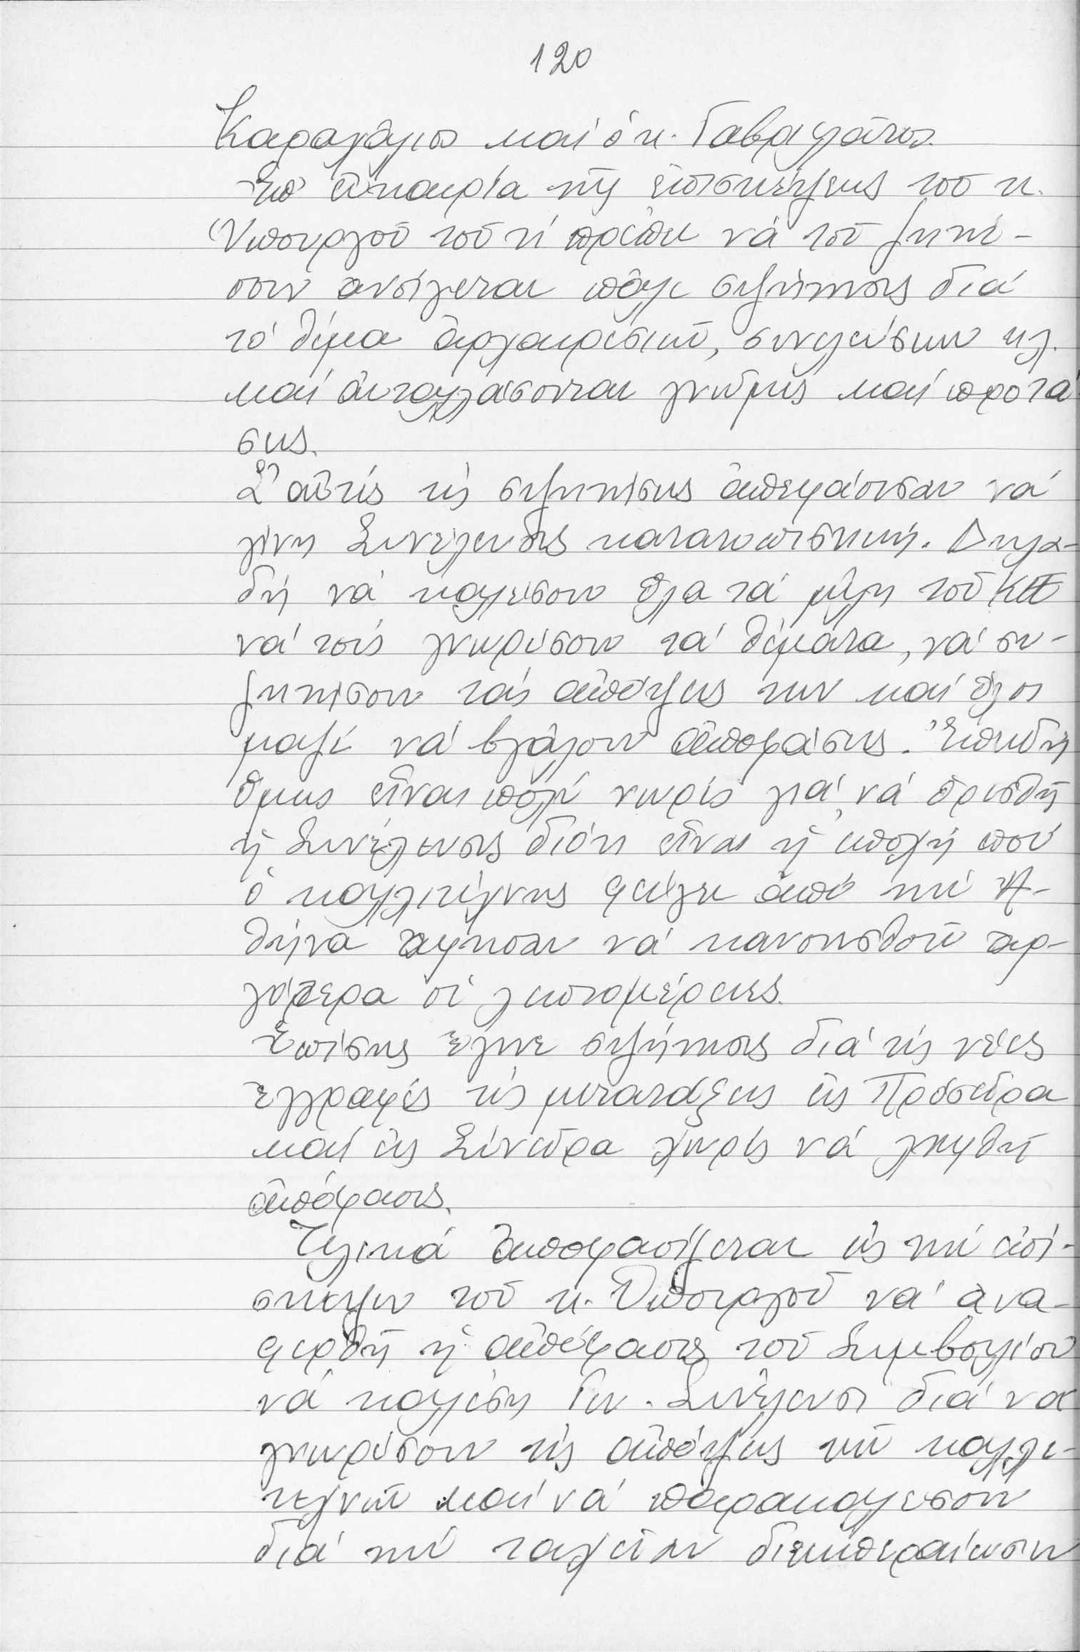 120
Καραγάλιος καί ὁ κ. Γαβριηλᾶτος.
Ἐπ' εὐκαιρία τῆς ἐπισκέψεως τοῦ κ.
Ὑπουργοῦ τοῦ τί πρέπει νά τοῦ ζητή-
σουν ἀνοίγεται πάλι συζήτησις διά
τό θέμα ἀρχαιρεσιῶν, συνελεύσεων κλ.
καί ἀνταλλάσονται γνῶμες καί προτά
σεις.
Σ' αὐτές τίς συζητήσεις ἀπεφάσισαν νά
γίνη Συνέλευσις κατατοπιστική. Δηλα-
δή νά καλέσουν ὅλα τά μέλη τοῦ ΚΕΕ
νά τούς γνωρίσουν τά θέματα, νά συ-
ζητήσουν τάς ἀπόψεις των καί ὅλοι
μαζί νά βγάλουν ἀποφάσεις. Ἐπειδή
ὅμως εἶναι πολύ νωρίς γιά νά ὁρισθῆ
ἡ Συνέλευσις διότι εἶναι ἡ ἐποχή πού
ὁ καλλιτέχνης φεύγει ἀπό τήν Ἀ-
θήνα ἄφησαν νά κανονισθοῦν ἀρ-
γότερα οἱ λεπτομέρειες.
Ἐπίσης ἔγινε συζήτησις διά τίς νέες
ἐγγραφές τίς μετατάξεις εἰς Πρόσεδρα
καί εἰς Σύνεδρα χωρίς νά ληφθῆ
ἀπόφασις.
Τελικά ἀποφασίζεται εἰς τήν ἐπί-
σκεψιν τοῦ κ. Ὑπουργοῦ νά ἀνα-
φερθῆ ἡ ἀπόφασις τοῦ Συμβουλίου
νά καλέση Γεν. Συνέλευσι διά νά
γνωρίσουν τίς ἀπόψεις τῶν καλλι-
τεχνῶν καί νά παρακαλέσουν
διά τήν ταχεῖαν διεκπεραίωσιν